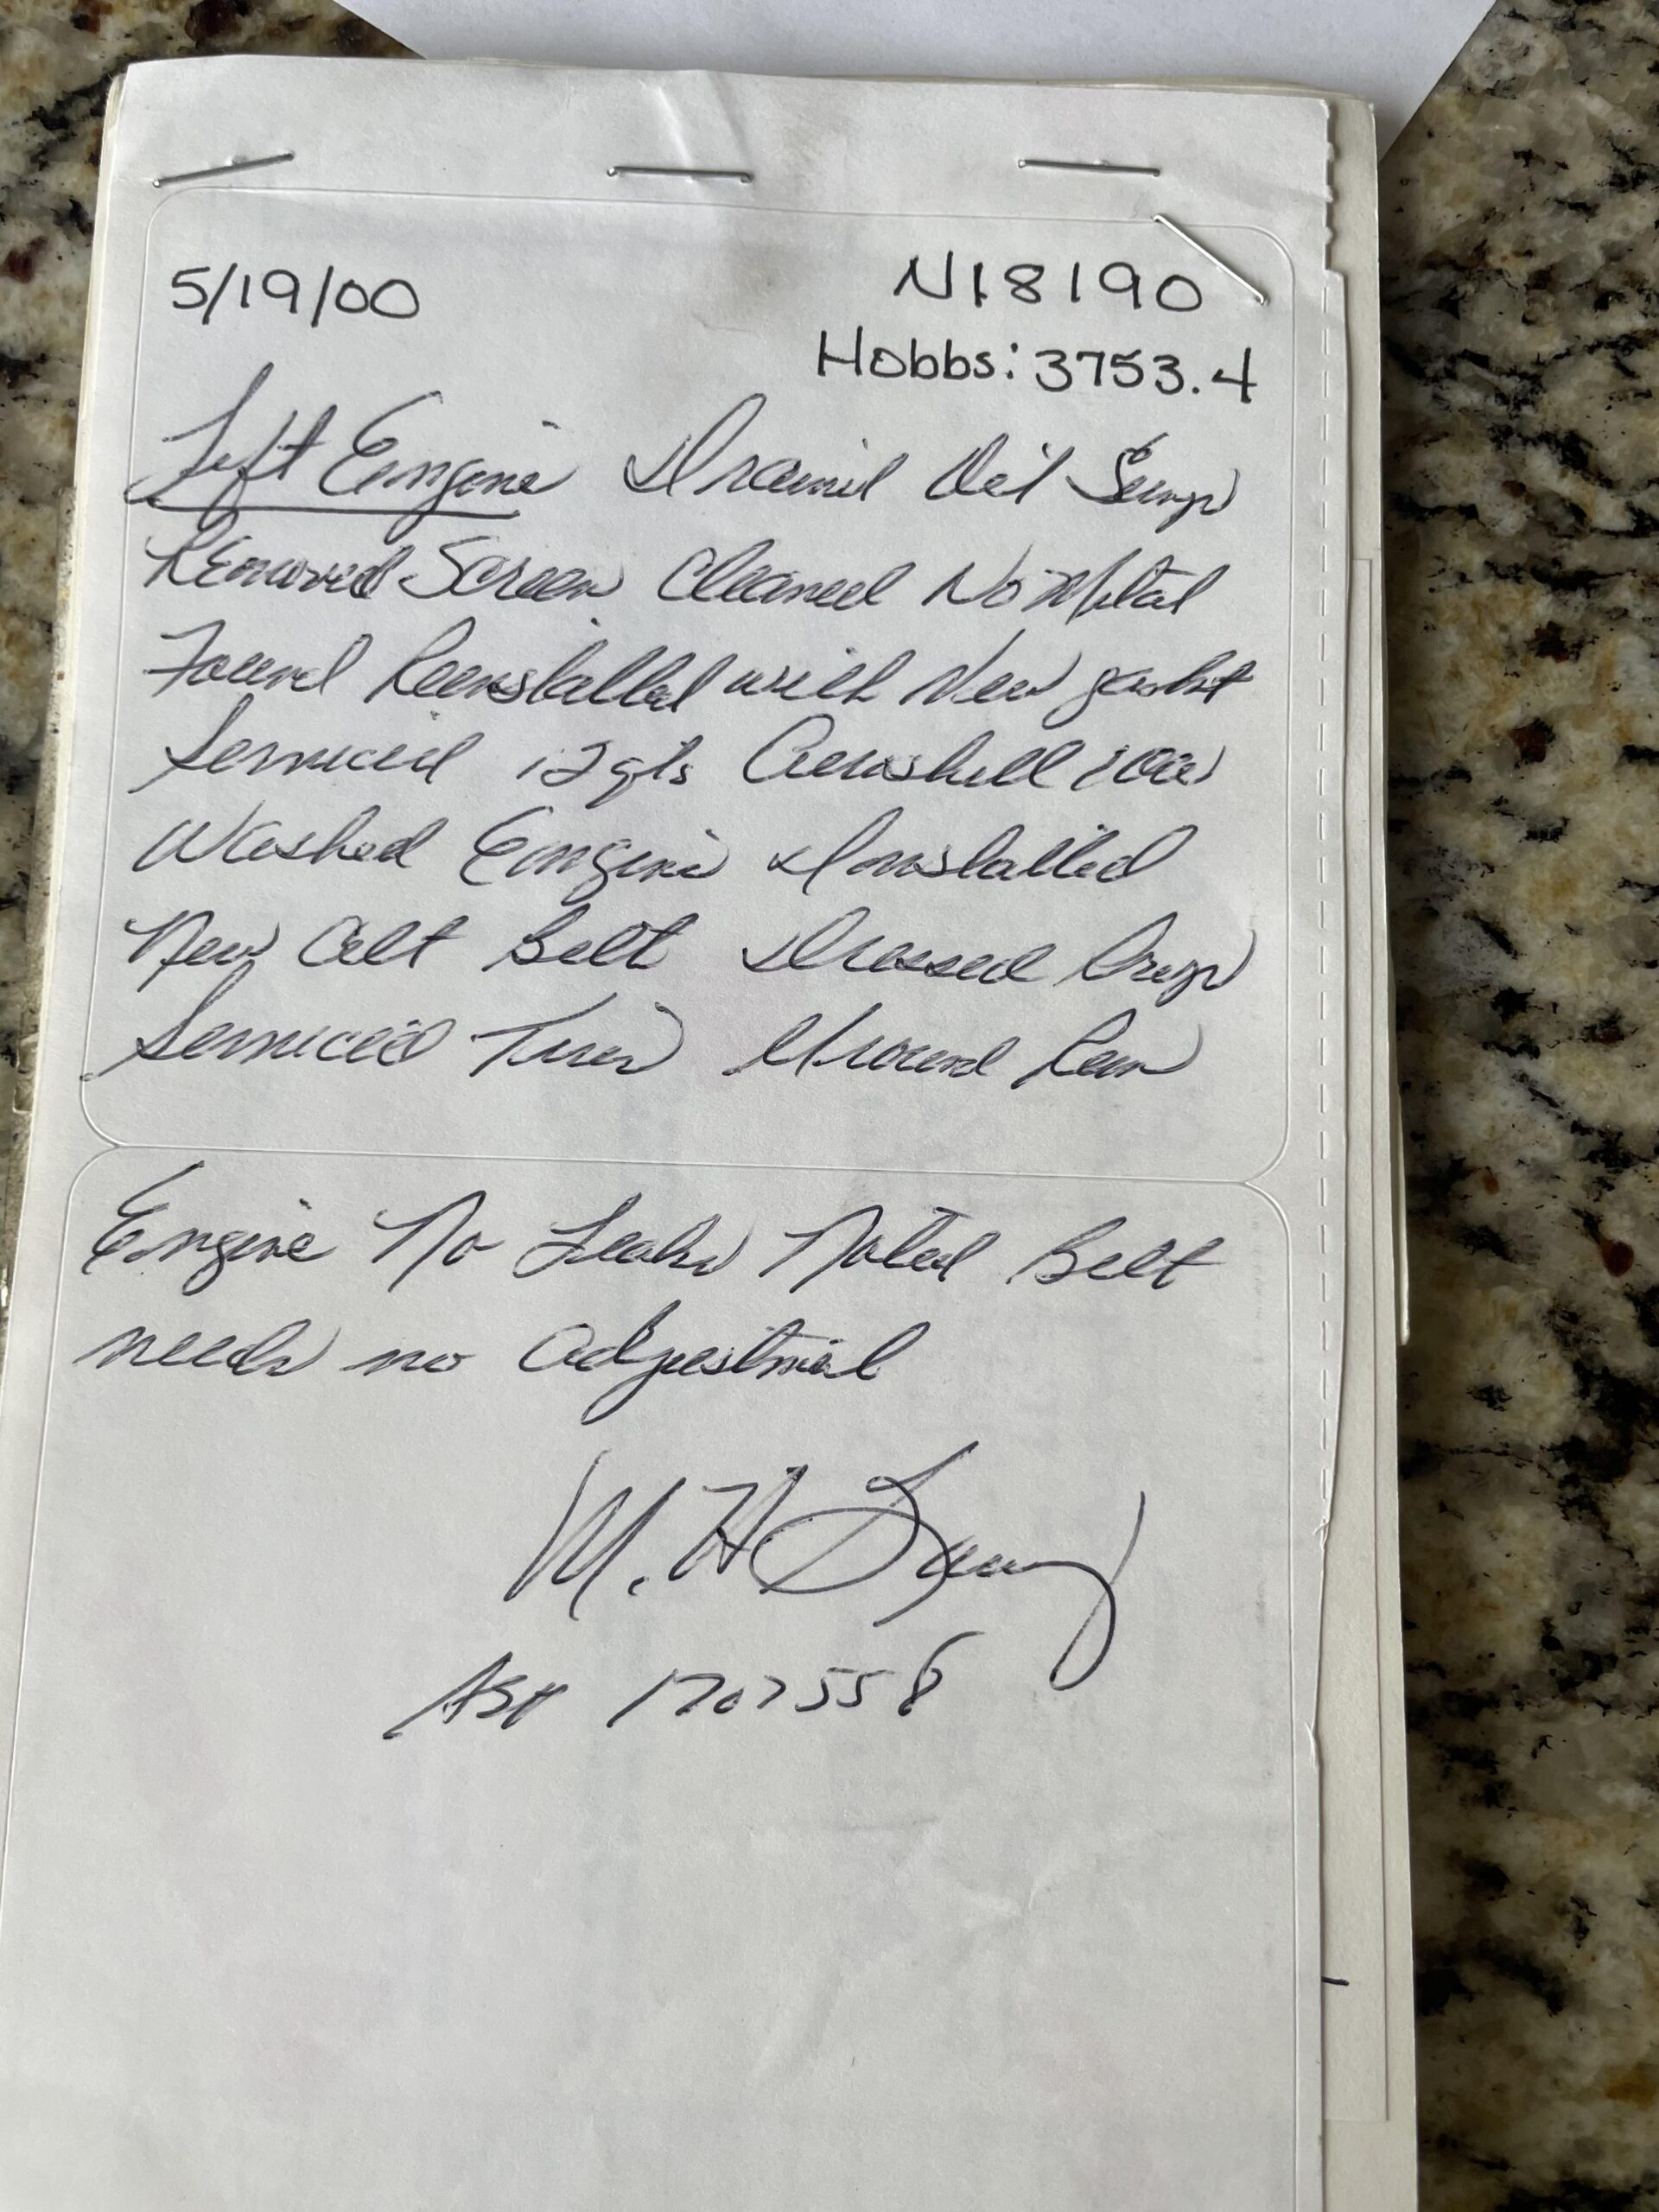 5/19/00 N18190
Hobbs: 3753.4
Left Engine Drained Oil Sump
Removed Screen Cleaned No Metal
Found Reinstalled with New gasket
Serviced 12 qts Aeroshell 100W
Washed Engine Installed
New Alt Belt Dressed Prop
Serviced Tires Ground Run
Engine No Leaks Noted Belt
needs no Adjustment
M. H
A&P 1707558